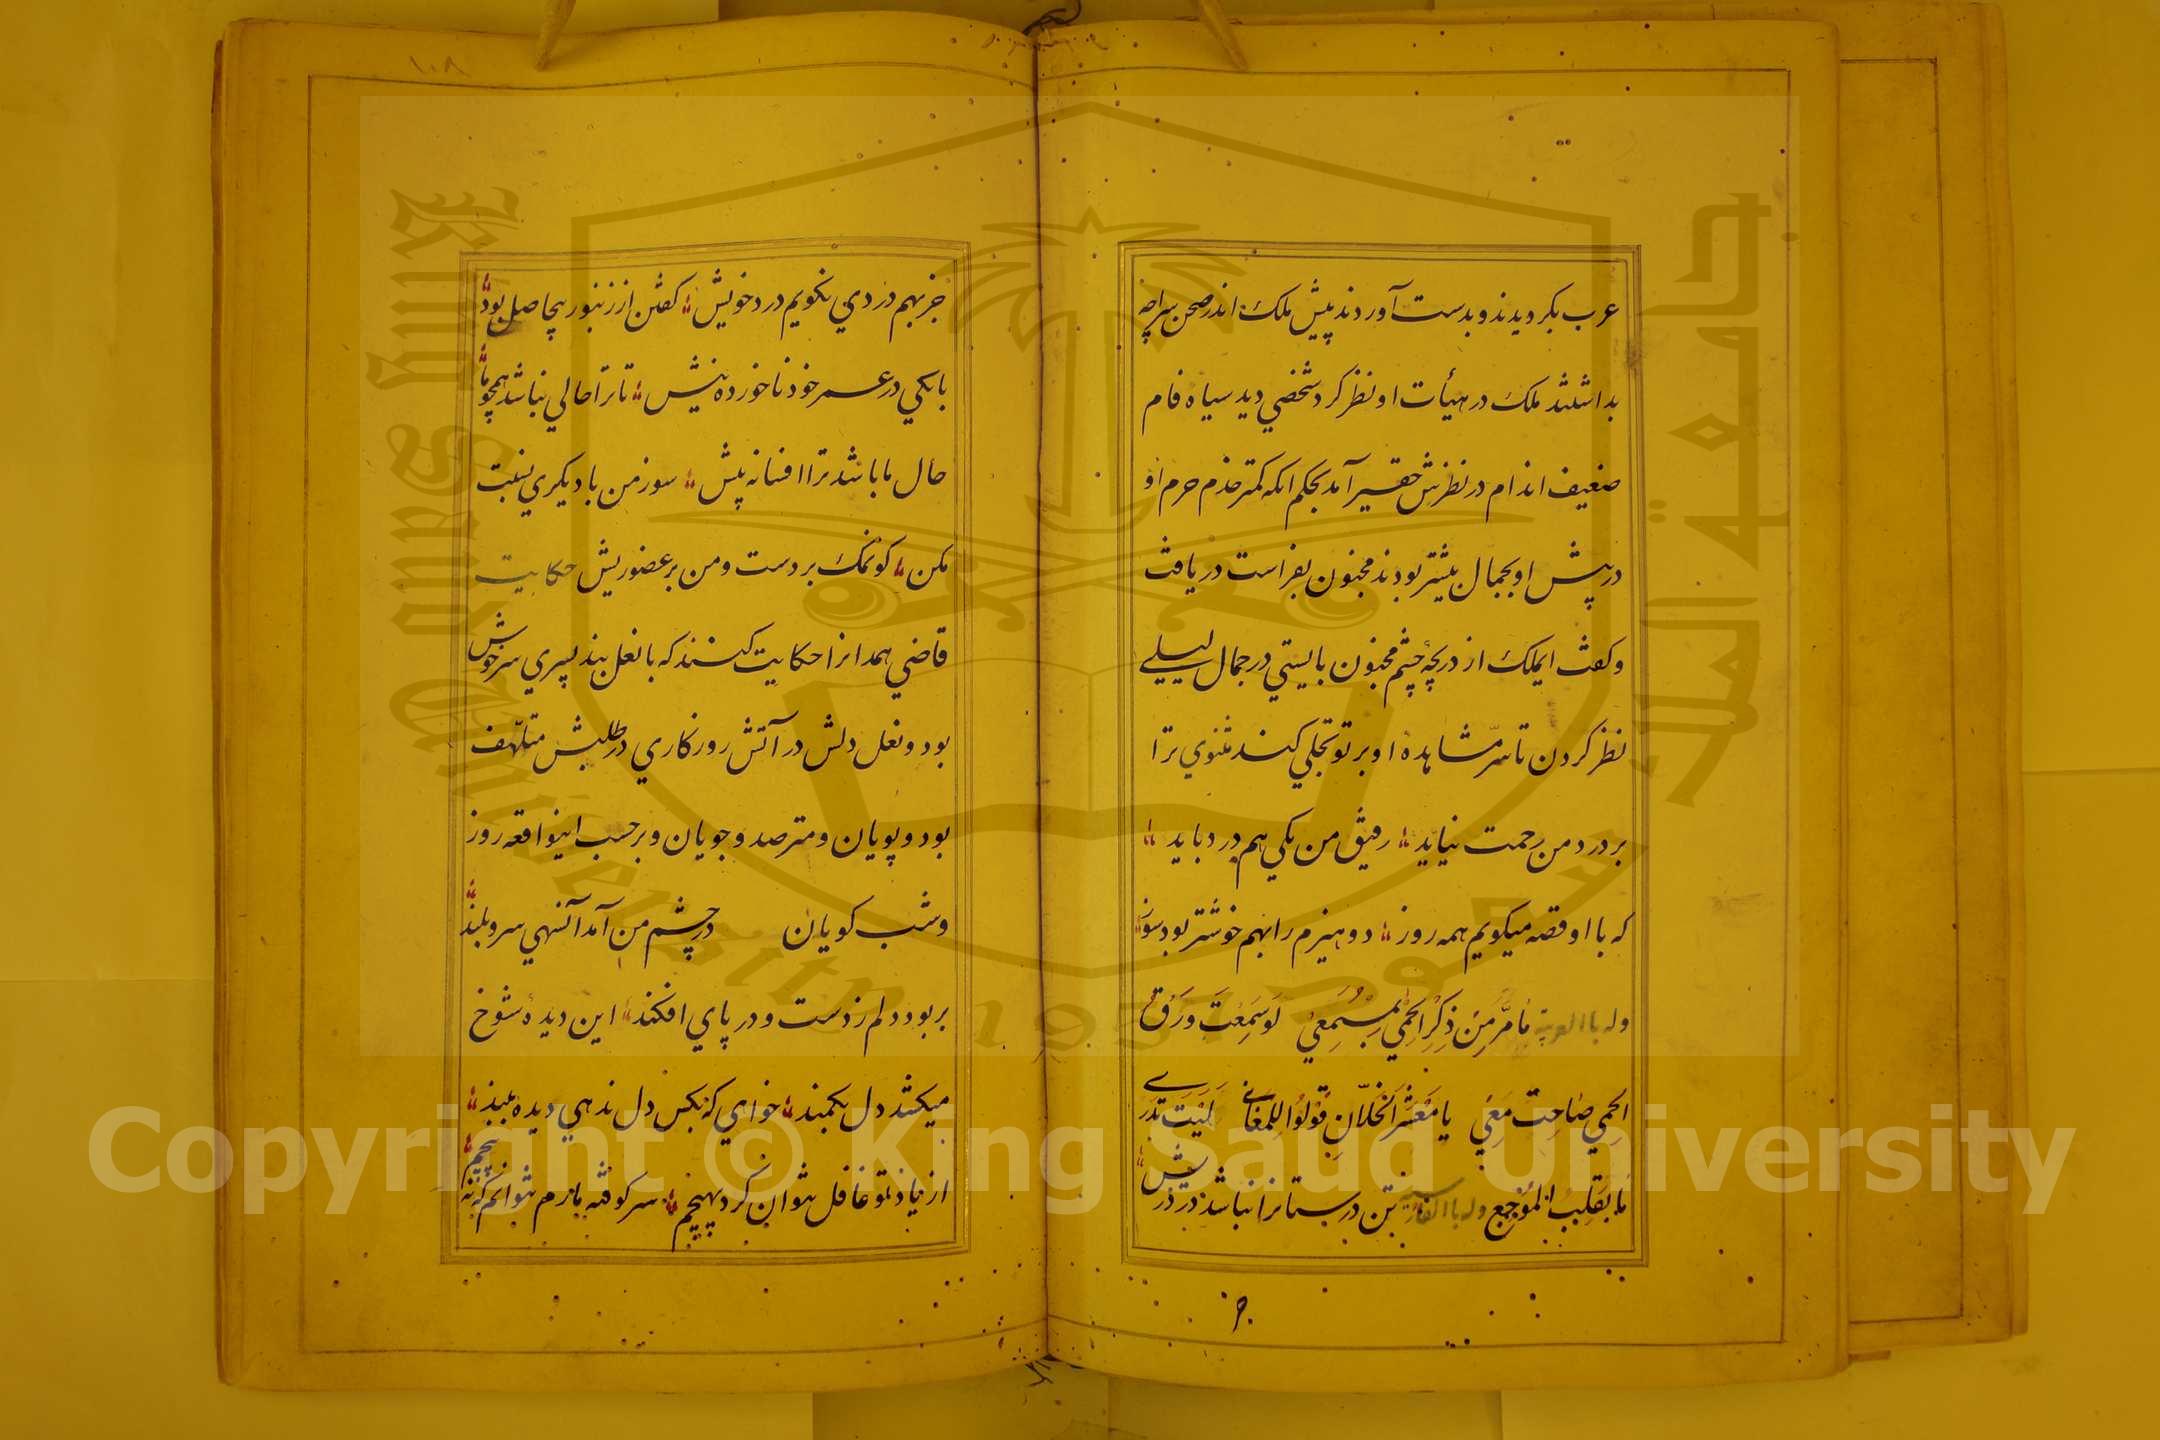 عرب بکردیدند و بدست آوردند پیش ملک اندر صحن سراچه
بداشتند ملک در هیأت او نظر کرد شخصی دید سیاه فام
ضعیف اندام در نظرش حقیر آمد بحکم انکه کمتر خدم حرم او
در پیش او بجمال بیشتر بودند مجنون بفراست دریافت
و کفت ایملک از دریچهٔ چشم مجنون بایستی در جمال لیلی
نظر کردن تا سرّ مشاهده او بر تو تجلی کند مثنوی ترا
بر درد من رحمت نیاید رفیق من یکی هم درد باید
که با او قصه میکویم همه روز دو هیزم را بهم خوشتر بود سوز
وله باالعربیة مَا مَرَّ مِنْ ذِکْرِ الحِمٰی بِمِسْمَعِی لَوْ سَمِعَتْ وَرَقُ
الحِمٰی صَاحَت مَعِی یا مَعْشَرَ الخُلّانِ قُوْلُوْا لِلمُعَافٰی لَیْتَ تَدْرِی
مَا بِقَلبِ المُوْجَعِ وله باالفارسیة تن درستانرا نباشد درد ریش
ج
١٠٨
جز بهم دردی نکویم درد خویش کفتن از زنبور بیحاصل بود
با یکی در عمر خود ناخورده نیش تا ترا حالی نباشد همچو ما
حال ما باشد ترا افسانه پیش سوز من با دیکری نسبت
مکن کو نمک بر دست و من بر عضو ریش حکایت
قاضی همدانرا حکایت کنند که با نعل بند پسری سر خوش
بود و نعل دلش در آتش روزکاری در طلبش متلهف
بود و پویان و مترصد و جویان و بر حسب اینواقعه روز
و شب کویان در چشم من آمد آنسهی سرو بلند
بربود دلم ز دست و در پای افکند این دیدهٔ شوخ
میکشد دل بکمند خواهی که بکس دل ندهی دیده ببند
از یاد تو غافل نتوان کرد بهیچم سر کوفته مارم نتوانم که نپیچم
Copyright © King Saud University
جامعة الملك سعود
King Saud University 1957